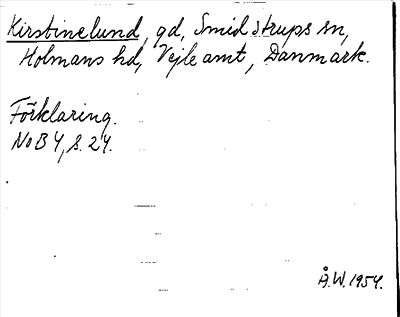 Kirstinelund, gd, Smidstrups sn,
Holmans hd, Vejle amt, Danmark.
Förklaring.
NoB 4, s. 24.
Å.W. 1954.